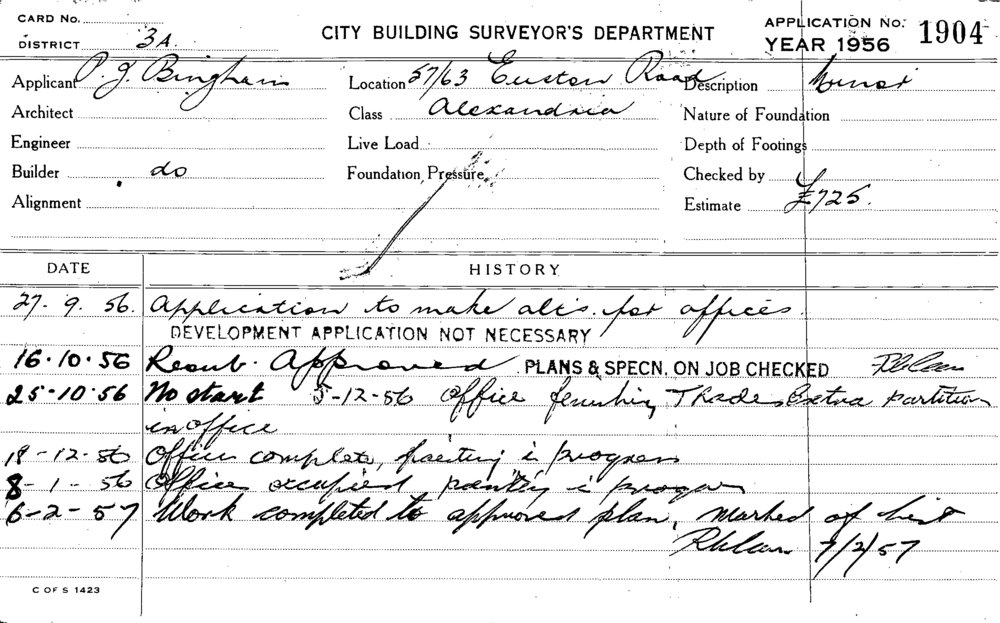 CARD No.
DISTRICT 3A.
CITY BUILDING SURVEYOR'S DEPARTMENT
APPLICATION No. 1904
YEAR 1956
Applicant P. J. Bingham Location 57/63 Euston Road Description Minor
Architect Class Alexandria Nature of Foundation
Engineer Live Load Depth of Footings
Builder do Foundation Pressure Checked by
Alignment Estimate £725.
DATE HISTORY
27. 9. 56. Application to make alts. for offices.
DEVELOPMENT APPLICATION NOT NECESSARY
16.10.56 Resub. Approved PLANS & SPECN. ON JOB CHECKED
25-10.56 No start 5-12-56 Office finishing Trades Extra partition
in office
18-12-56 Offices complete, painting in progress
8-1-56 Offices occupied painting in progress
6-2-57 Work completed to approved plan, marked of list
7/2/57
C OF S 1423